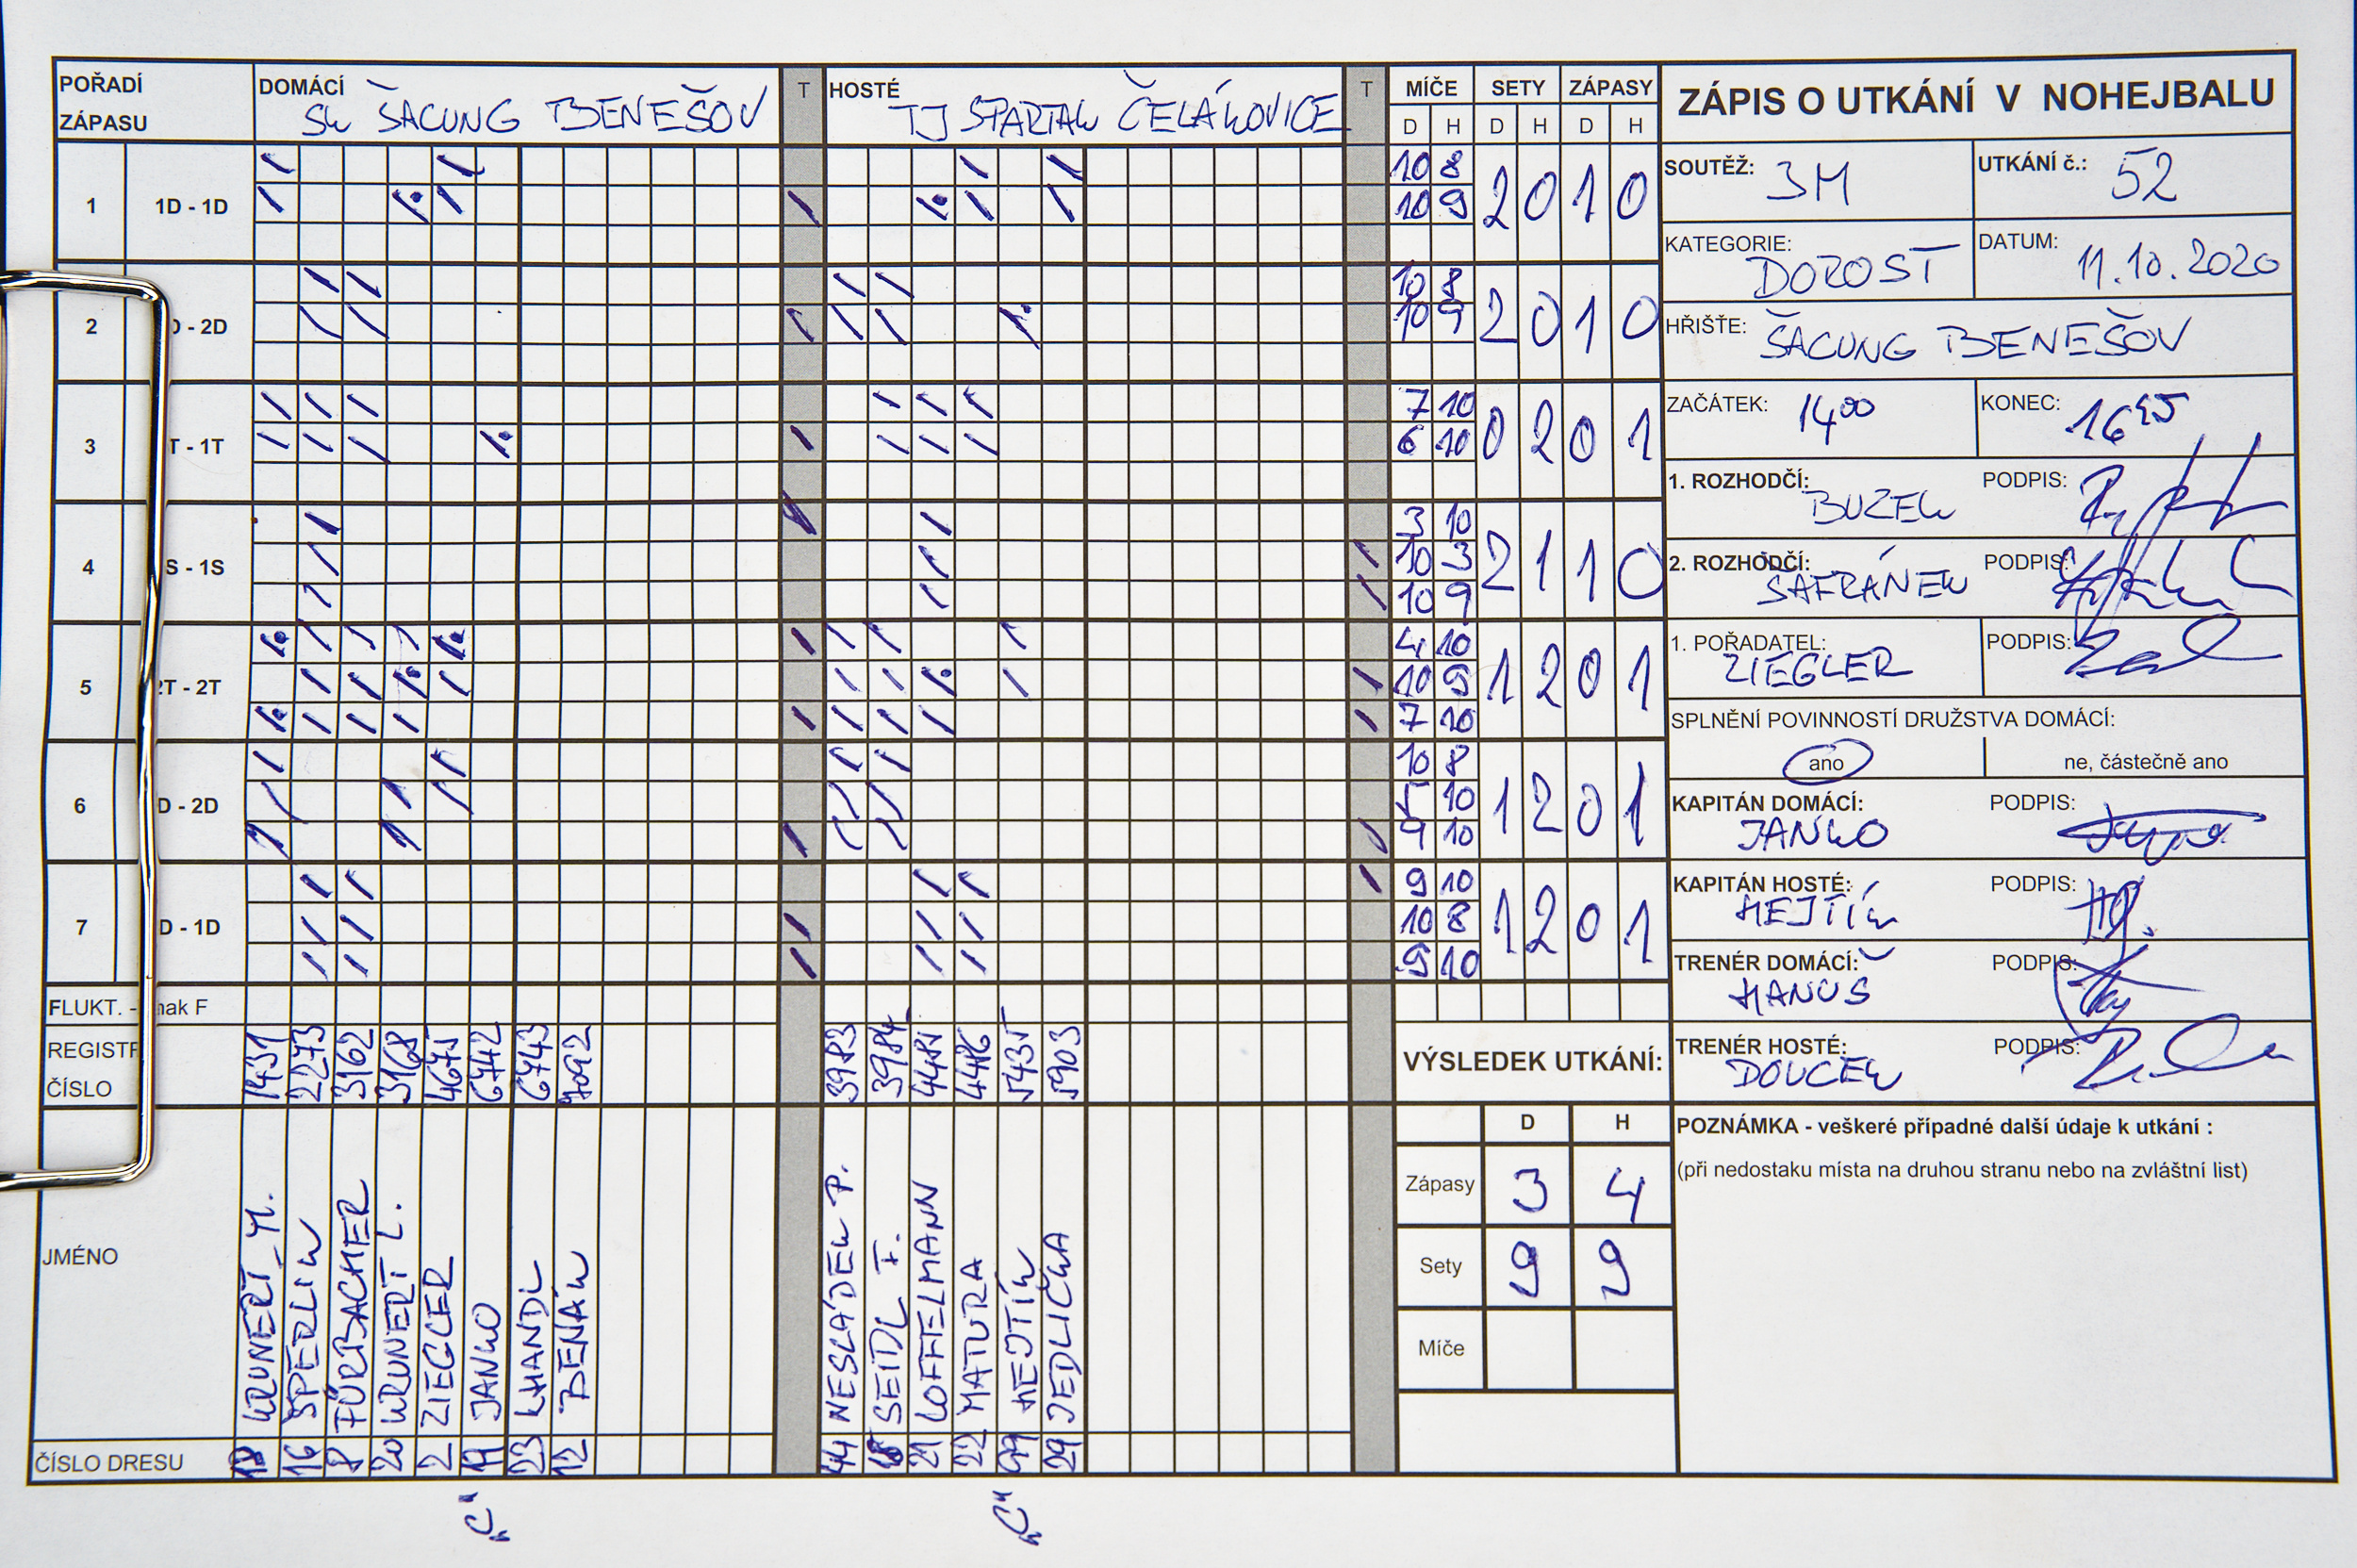 POŘADÍ ZÁPASU DOMÁCÍ SK ŠACUNG BENEŠOV T HOSTÉ TJ SPARTAK ČELÁKOVICE T MÍČE SETY ZÁPASY
D H D H D H
1 1D - 1D 10 8 2 0 1 0
10 9
2 D - 2D 10 8 2 0 1 0
10 9
3 T - 1T 7 10 0 2 0 1
6 10
4 S - 1S 3 10 2 1 1 0
10 3
10 9
5 2T - 2T 4 10 1 2 0 1
10 9
7 10
6 D - 2D 10 8 1 2 0 1
5 10
9 10
7 D - 1D 9 10 1 2 0 1
10 8
9 10
FLUKT. - nak F
REGISTR ČÍSLO 1431 2273 3162 3168 4675 6742 6743 7092 3983 3984 4485 4486 5435 5903
JMÉNO KRUNERT M. SPERLIK FÜRBACHER KRUNERT L. ZIEGLER JANKO KHANDL BENÁK NESLÁDEK P. SEIDL F. LOFFELMANN MATURA HEJTÍK JEDLIČKA
ČÍSLO DRESU 16 8 20 2 19 23 12 44 21 22 29
"C" "C"
VÝSLEDEK UTKÁNÍ:
D H
Zápasy 3 4
Sety 9 9
Míče
ZÁPIS O UTKÁNÍ V NOHEJBALU
SOUTĚŽ: 3M UTKÁNÍ č.: 52
KATEGORIE: DOROST DATUM: 11.10.2020
HŘIŠTE: ŠACUNG BENEŠOV
ZAČÁTEK: 14 00 KONEC: 16 45
1. ROZHODČÍ: BUZEK PODPIS:
2. ROZHODČÍ: SAFRÁNEK PODPIS:
1. POŘADATEL: ZIEGLER PODPIS:
SPLNĚNÍ POVINNOSTÍ DRUŽSTVA DOMÁCÍ:
ano ne, částečně ano
KAPITÁN DOMÁCÍ: JANKO PODPIS:
KAPITÁN HOSTÉ: HEJTÍK PODPIS:
TRENÉR DOMÁCÍ: HANUŠ PODPIS:
TRENÉR HOSTÉ: DOUCEK PODPIS:
POZNÁMKA - veškeré případné další údaje k utkání :
(při nedostaku místa na druhou stranu nebo na zvláštní list)